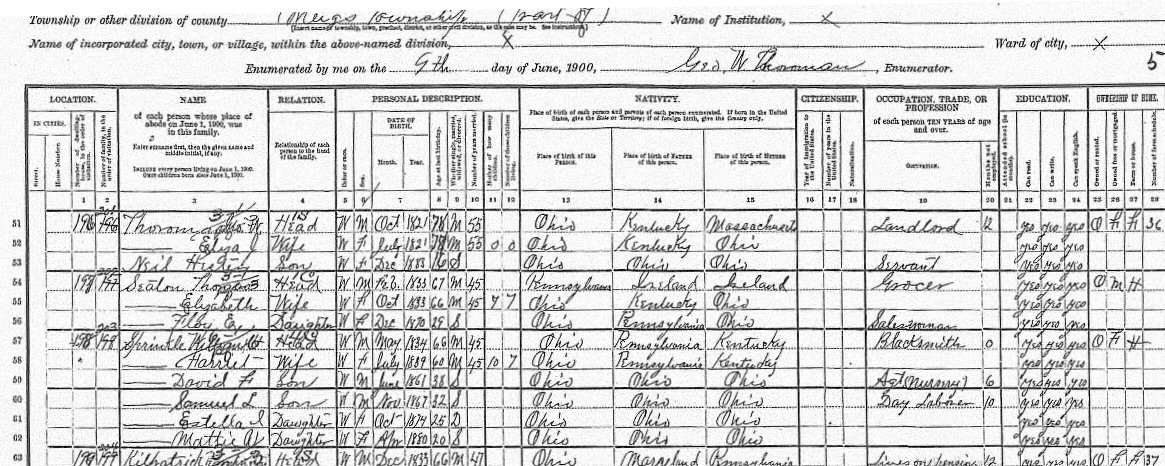 Township or other division of county Meigs Township (part of) Name of Institution, X
Name of incorporated city, town, or village, within the above-named division, X Ward of city, X
Enumerated by me on the 9th day of June, 1900, Geo. W. Thoroman, Enumerator. 5
LOCATION. NAME RELATION. PERSONAL DESCRIPTION. NATIVITY. CITIZENSHIP. OCCUPATION, TRADE, OR PROFESSION EDUCATION. OWNERSHIP OF HOME.
IN CITIES. of each person whose place of abode on June 1, 1900, was in this family. Relationship of each person to the head of the family. DATE OF BIRTH. Place of birth of each person and parents of each person enumerated. If born in the United States, give the State or Territory; if of foreign birth, give the Country only. of each person TEN YEARS of age and over.
Enter surname first, then the given name and middle initial, if any.
INCLUDE every person living on June 1, 1900. OMIT children born since June 1, 1900.
Street. House Number. Color or race. Sex. Month. Year. Age at last birthday. Place of birth of this PERSON. Place of birth of FATHER of this person. Place of birth of MOTHER of this person. Year of immigration to the United States. Number of years in the United States. Naturalization. OCCUPATION. Months not employed. Attended school (in months). Can read. Can write. Can speak English. Owned or rented. Owned free or mortgaged. Farm or house. Number of farm schedule.
1 2 3 4 5 6 7 8 9 10 11 12 13 14 15 16 17 18 19 20 21 22 23 24 25 26 27 28
51 196 Head W M Oct 1821 78 M 55 Ohio Kentucky Massachusetts Landlord 12 yes yes yes O F F 36
52 Eliza J Wife W F July 1821 78 M 55 0 0 Ohio Kentucky Ohio yes yes yes
53 Neil Son W F Dec 1883 16 S Ohio Ohio Ohio Servant yes yes yes
54 197 Seaton Thomas Head W M Feb 1833 67 M 45 Pennsylvania Ireland Ireland Grocer yes yes yes O M H
55 Elizabeth Wife W F Oct 1833 66 M 45 7 7 Ohio Kentucky Ohio yes yes yes
56 Floy E. Daughter W F Dec 1870 29 S Ohio Pennsylvania Ohio Saleswoman yes yes yes
57 198 Sprinkle Head W M May 1834 66 M 45 Ohio Pennsylvania Kentucky Blacksmith 0 yes yes yes O F H
58 Harriet Wife W F July 1839 60 M 45 10 7 Ohio Pennsylvania Kentucky yes yes yes
59 David F Son W M June 1861 38 S Ohio Ohio Ohio Agt (Nursery) 6 yes yes yes
60 Samuel L Son W M Nov 1867 32 S Ohio Ohio Ohio Day Laborer 10 yes yes yes
61 Estella I Daughter W F Oct 1874 25 D Ohio Ohio Ohio yes yes yes
62 Mattie Daughter W F Apr 1880 20 S Ohio Ohio Ohio yes yes yes
63 199 Kilpatrick Head W M Dec 1833 66 M 47 Ohio Maryland Pennsylvania Lives on pension 12 yes yes yes O F F 37